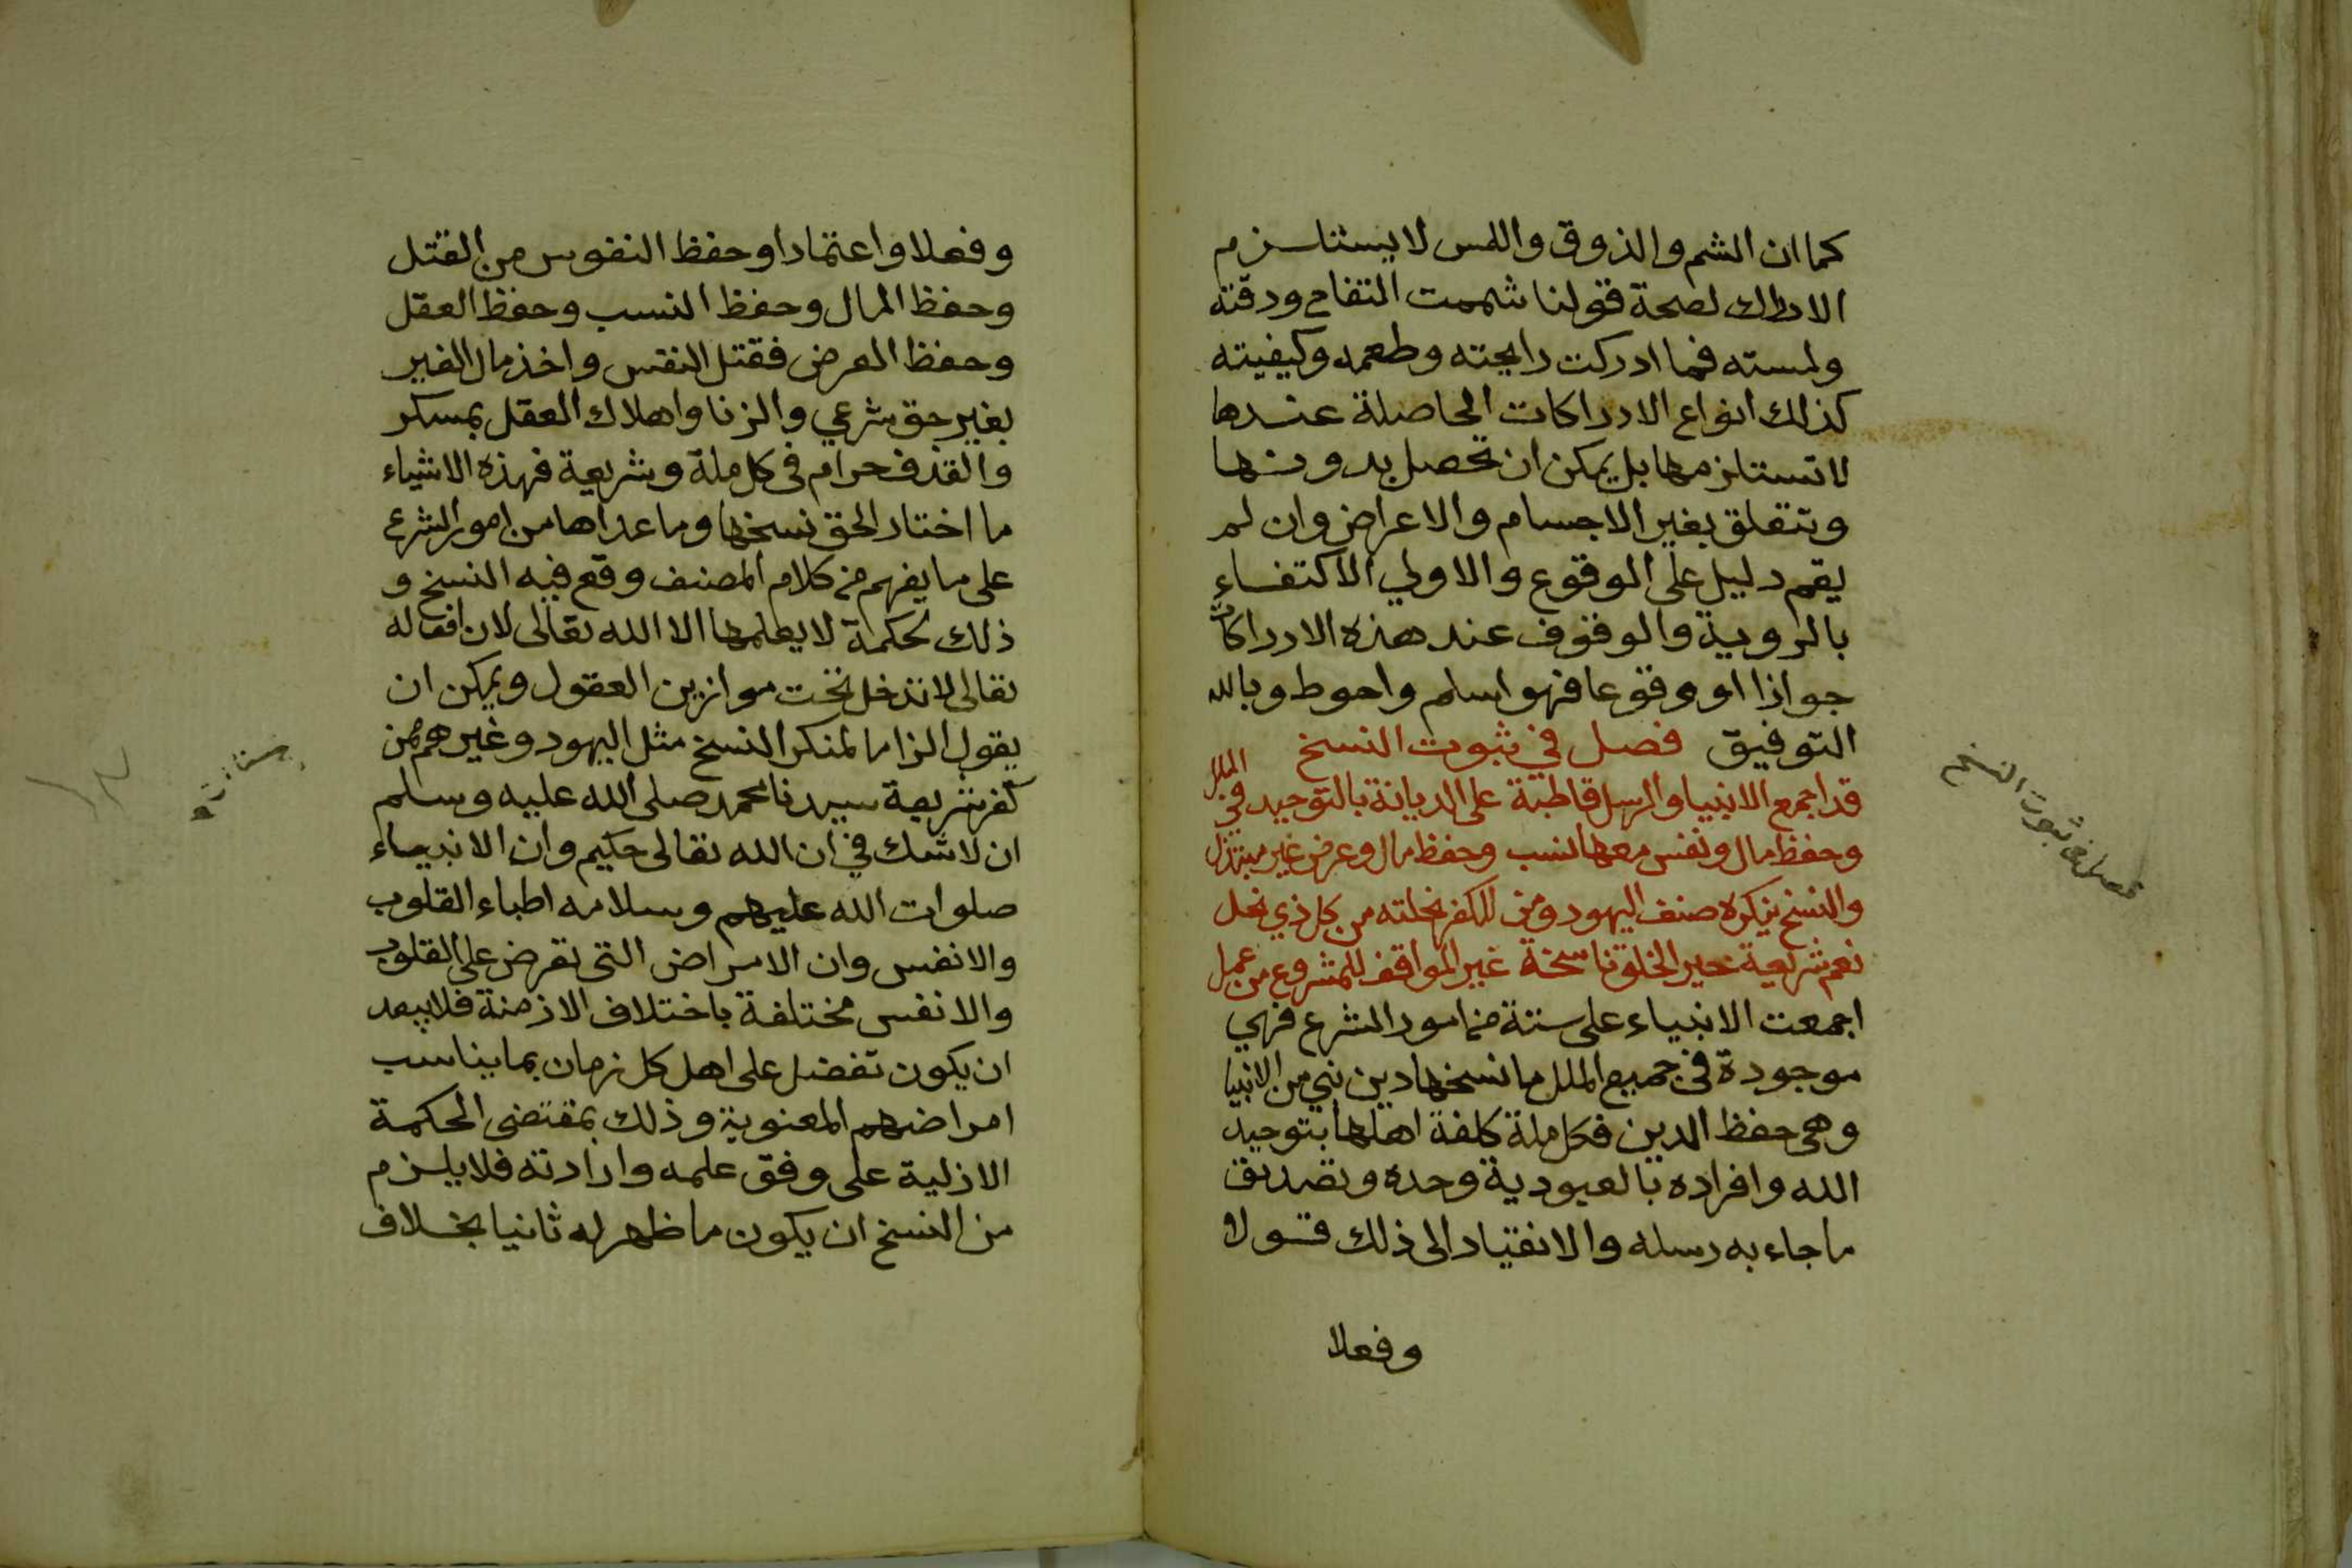 كما ان الشم والذوق واللمس لا يستلزم
الادراك لصحة قولنا شممت التفاح ودقته
ولمسته فما ادركت رايحته وطعمه وكيفيته
كذلك انواع الادراكات الحاصلة عندها
لا تستلزمها بل يمكن ان تحصل بدونها
وتتعلق بغير الاجسام والاعراض وان لم
يقم دليل على الوقوع والاولي الاكتفاء
بالروية والوقوف عند هذه الادراكات
جوازا او وقوعا فهو اسلم واحوط وبالله
التوفيق فصل في ثبوت النسخ
قد اجمع الانبيا والرسل قاطبة على الديانة بالتوحيد في الملل
وحفظ مال ونفس معهما نسب وحفظ مال وعرض غير مبتذل
والنسخ ينكره صنف اليهود ومن للكفر نحلته من كل ذي نحل
نعم شريعة خير الخلق ناسخة غير الموافق للمشروع من عمل
اجمعت الانبياء على ستة من امور الشرع فهي
موجودة في جميع الملل ما نسخها دين نبي من الانبيا
وهي حفظ الدين فكل ملة كلفة اهلها بتوحيد
الله وافراده بالعبودية وحده وتصديق
ما جاء به رسله والانقياد الى ذلك قولا
وفعلا
فصل في ثبوت النسخ
وفعلا واعتمادا وحفظ النفوس من القتل
وحفظ المال وحفظ النسب وحفظ العقل
وحفظ العرض فقتل النفس واخذ مال الغير
بغير حق شرعي والزنا واهلاك العقل بمسكر
والقذف حرام في كل ملة وشريعة فهذه الاشياء
ما اختار الحق نسخها وما عداها من امور الشرع
على ما يفهم من كلام المصنف وقع فيه النسخ و
ذلك لحكمة لا يعلمها الا الله تعالى لان افعاله
تعالى لا تدخل تحت موازين العقول ويمكن ان
يقول الزاما لمنكر النسخ مثل اليهود وغيرهم ممن
كفر بشريعة سيدنا محمد صلى الله عليه وسلم
ان لا شك في ان الله تعالى حكيم وان الانبياء
صلوات الله عليهم وسلامه اطباء القلوب
والانفس وان الامراض التي تعرض على القلوب
والانفس مختلفة باختلاف الازمنة فلا يبعد
ان يكون تفضل على اهل كل زمان بما يناسب
امراضهم المعنوية وذلك بمقتضى الحكمة
الازلية على وفق علمه وارادته فلا يلزم
من النسخ ان يكون ما ظهر له ثانيا بخلاف